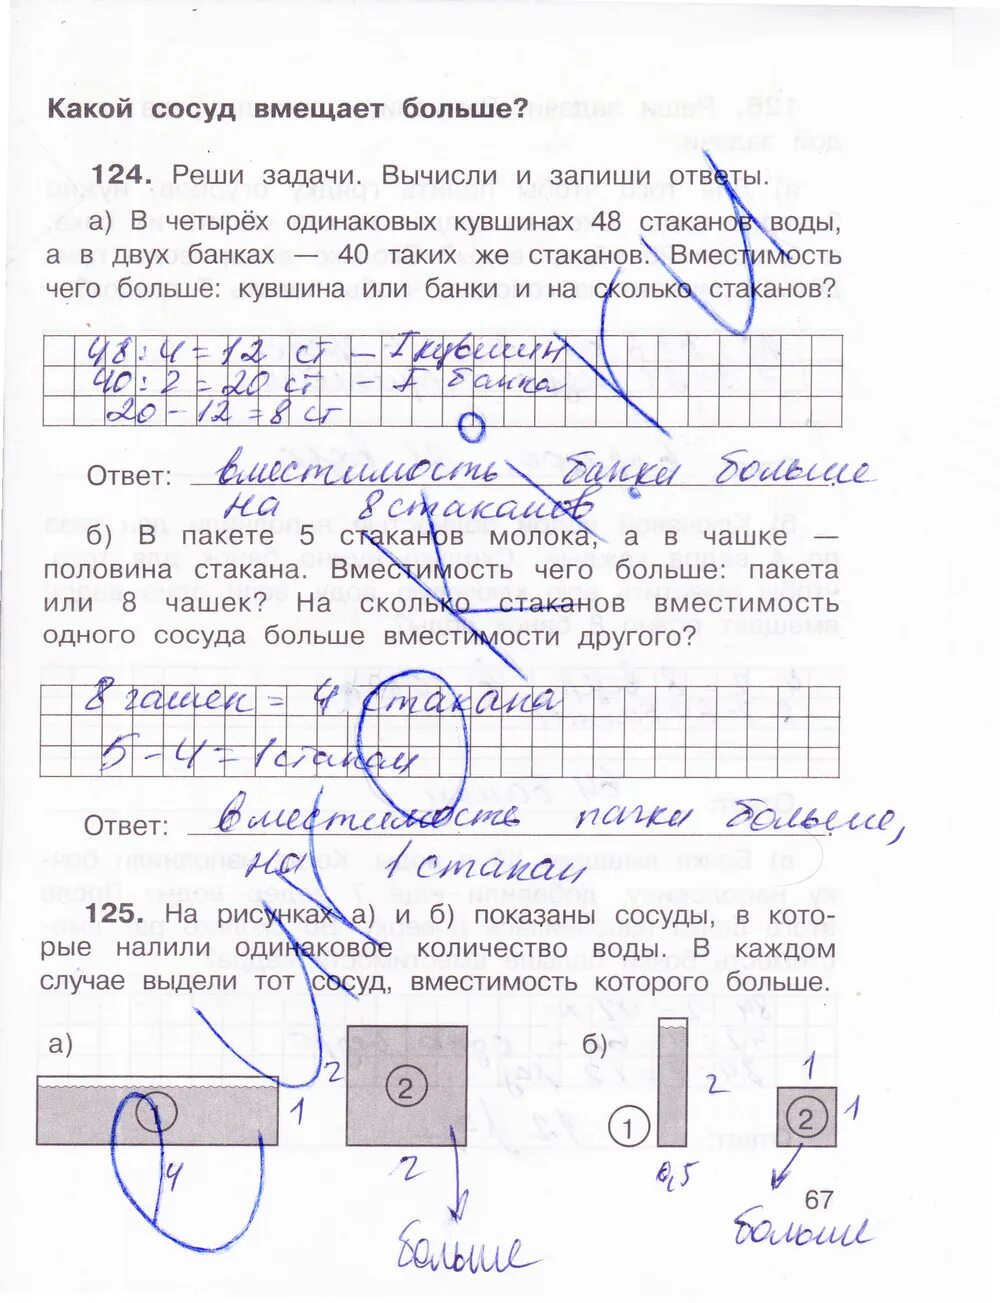 Какой сосуд вмещает больше?
124. Реши задачи. Вычисли и запиши ответы.
а) В четырёх одинаковых кувшинах 48 стаканов воды,
а в двух банках — 40 таких же стаканов. Вместимость
чего больше: кувшина или банки и на сколько стаканов?
48 : 4 = 12 ст – I кувшин
40 : 2 = 20 ст – I банка
20 – 12 = 8 ст
Ответ: вместимость банки больше
на 8 стаканов
б) В пакете 5 стаканов молока, а в чашке —
половина стакана. Вместимость чего больше: пакета
или 8 чашек? На сколько стаканов вместимость
одного сосуда больше вместимости другого?
8 чашек = 4 стакана
5 – 4 = 1 стакан
Ответ: вместимость пачки больше,
на 1 стакан
125. На рисунках а) и б) показаны сосуды, в кото-
рые налили одинаковое количество воды. В каждом
случае выдели тот сосуд, вместимость которого больше.
а) 1 1 4
2 2 2
больше
б) 1 2 0,5
1 2 1
больше
67